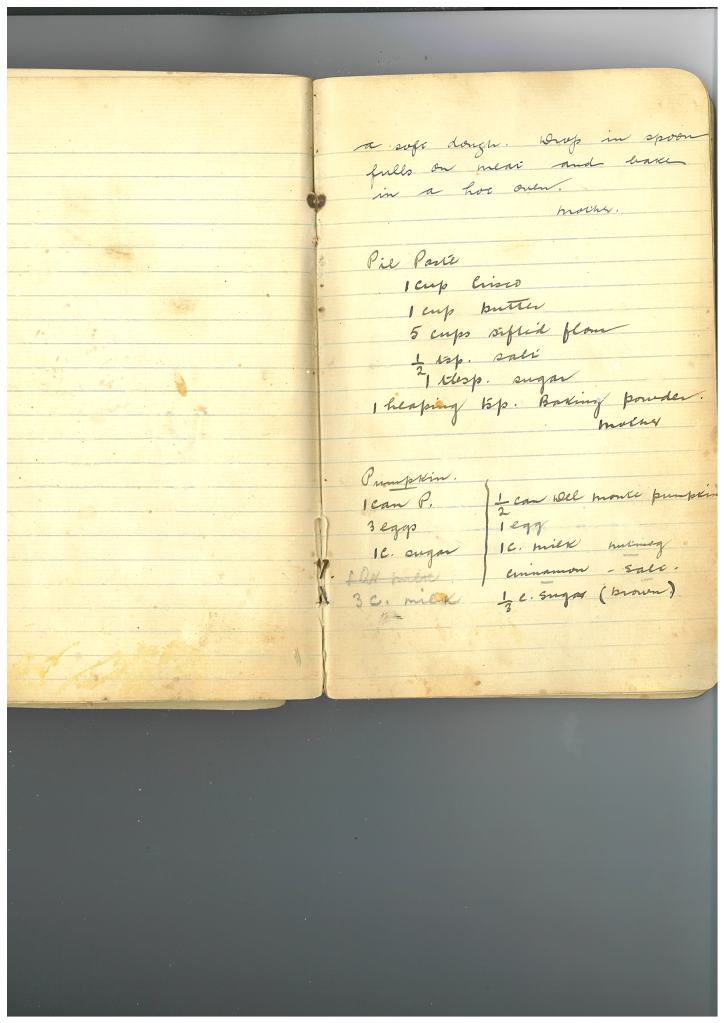 a soft dough. Drop in spoon
fulls on meat and bake
in a hot oven.
Mother.
Pie Paste
1 cup Crisco
1 cup butter
5 cups sifted flour
1/2 tsp. salt
1 tbsp. sugar
1 heaping tsp. Baking powder.
Mother
Pumpkin.
1 can P.
3 eggs
1 c. sugar
3 c. milk
1/2 can Del Monte pumpkin
1 egg
1 c. milk nutmeg
cinnamon - salt.
1/3 c. sugar (brown)